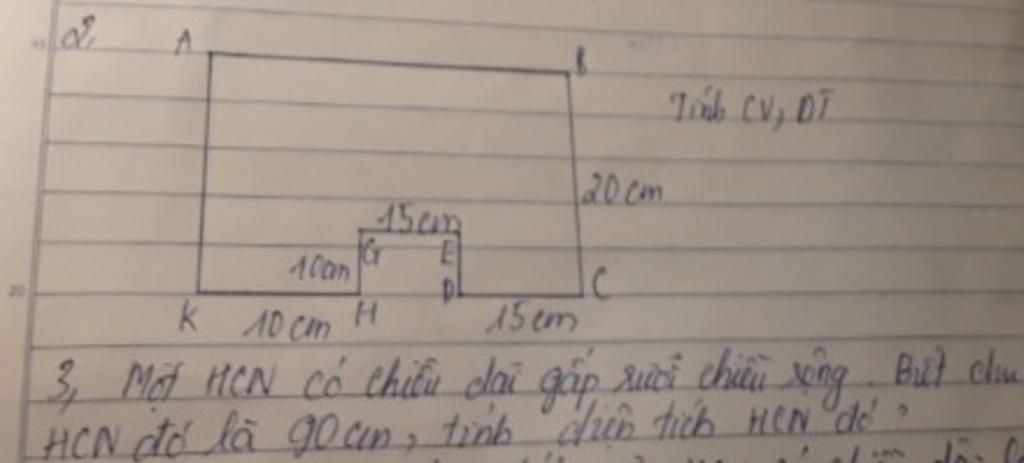 2,
A
B
Tính CV, DT
20cm
15cm
G E
10cm
K H D C
10cm 15cm
3, Một HCN có chiều dài gấp rưỡi chiều rộng. Biết chu
HCN đó là 90cm, tính diện tích HCN đó?